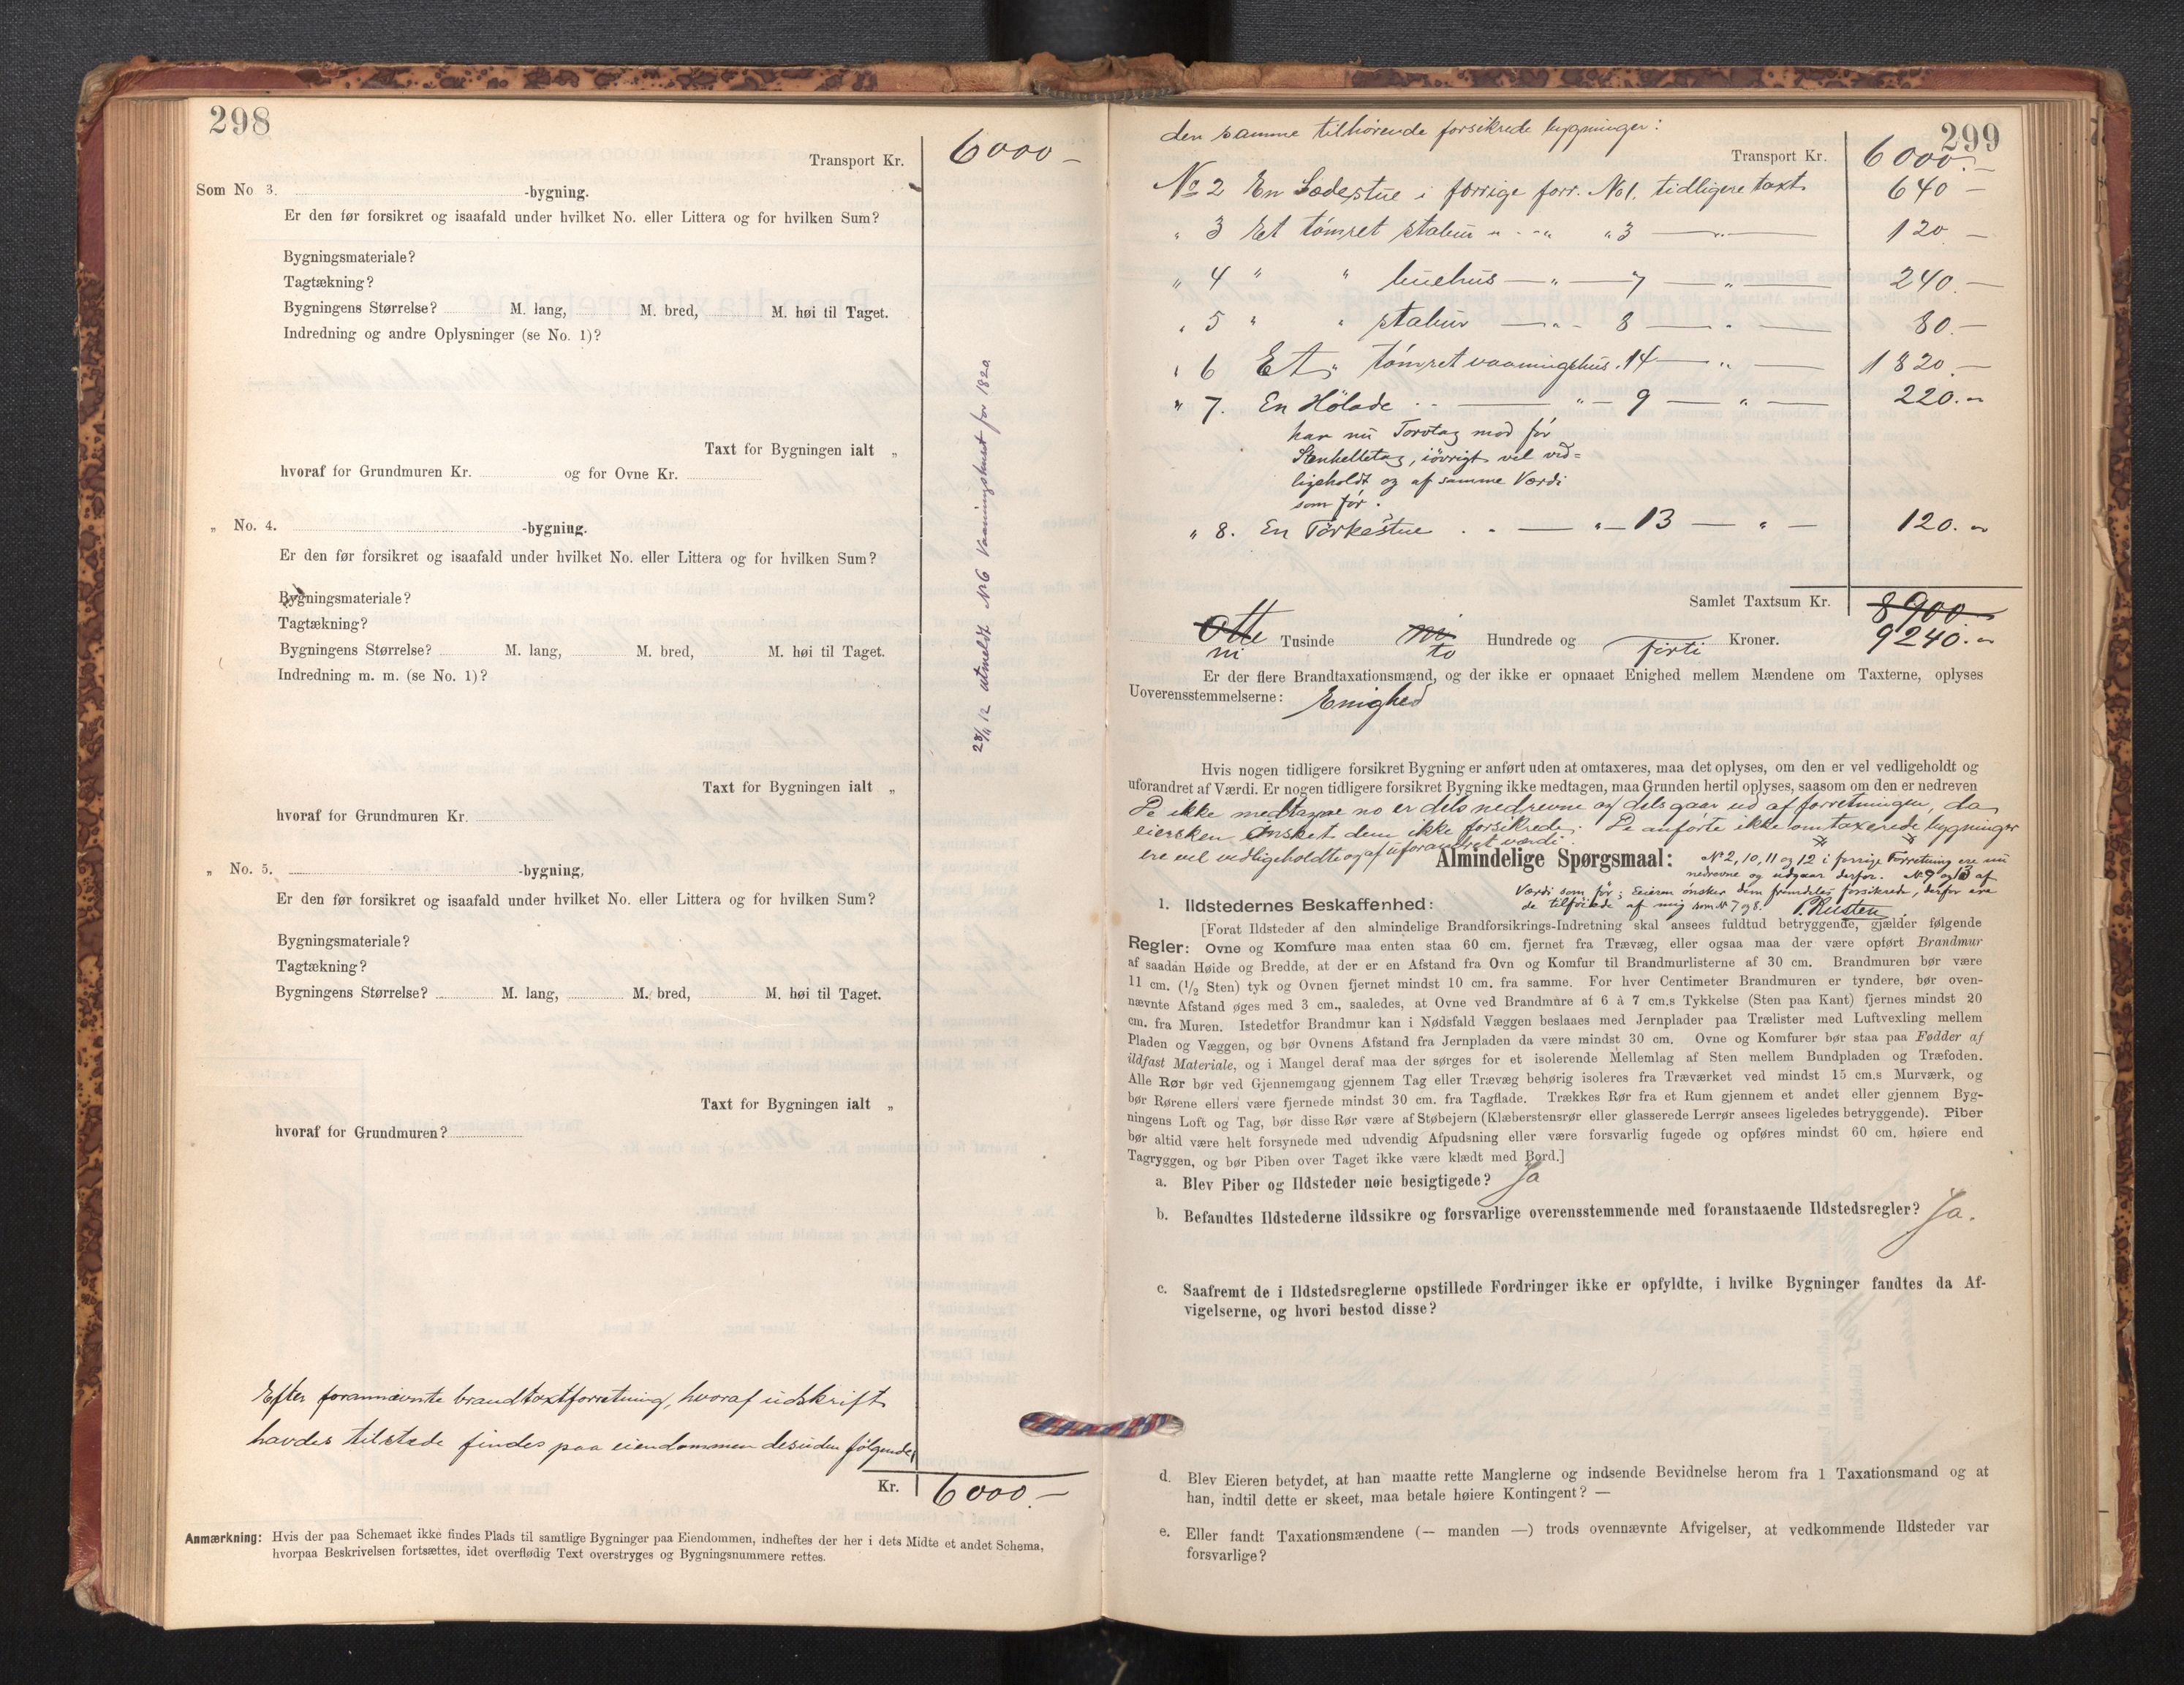 298
Transport Kr. 6000 –
Som No 3. -bygning.
Er den før forsikret og isaafald under hvilket No. eller Littera og for hvilken Sum?
Bygningsmateriale?
Tagtækning?
Bygningens Størrelse? M. lang, M. bred, M. høi til Taget.
Indredning og andre Oplysninger (se No. 1)?
Taxt for Bygningen ialt „
hvoraf for Grundmuren Kr. og for Ovne Kr.
„ No. 4. -bygning.
Er den før forsikret og isaafald under hvilket No. eller Littera og for hvilken Sum?
Bygningsmateriale?
Tagtækning?
Bygningens Størrelse? M. lang, M. bred, M. høi til Taget.
Indredning m. m. (se No. 1)?
Taxt for Bygningen ialt „
hvoraf for Grundmuren Kr.
„ No. 5. -bygning,
Er den før forsikret og isaafald under hvilket No. eller Littera og for hvilken Sum?
Bygningsmateriale?
Tagtækning?
Bygningens Størrelse? M. lang, M. bred, M. høi til Taget.
Taxt for Bygningen ialt „
hvoraf for Grundmuren?
Efter forannævnte brandtaxtforretning, hvoraf udskrift
havdes tilstede findes paa eiendommen desuden følgende
Kr. 6000. –
Anmærkning: Hvis der paa Schemaet ikke findes Plads til samtlige Bygninger paa Eiendommen, indheftes der her i dets Midte et andet Schema,
hvorpaa Beskrivelsen fortsættes, idet overflødig Text overstryges og Bygningsnummere rettes.
28/11 12 utmeldt Nr 6 Vaaningshuset for 1820
299
den samme tilhørende forsikrede bygninger:
Transport Kr. 6000. –
No 2 En Sødestue i forrige forr. No 1. tidligere taxt 640 –
„ 3 Et tømret stabur „ - „ „ 3 — „ — 120 –
„ 4 „ „ buehus — „ — 7 — „ — 240. –
„ 5 „ „ stabur — „ - 8 — „ — 80. –
„ 6 Et „ tømret vaaningshus . 14 — „ — 1820. –
„ 7. En Hølade .. — „ – 9 — „ — 220. –
har nu Torvtag mod før
Stenhelletag, iøvrigt vel ved=
ligeholdt og af samme Værdi
som før.
„ 8. En Tørkestue . „ — „ – 13 — „ — 120. –
Samlet Taxtsum Kr. 8900
Otte Tusinde ni Hundrede og firti Kroner. 9240. –
ni to
Er der flere Brandtaxationsmænd, og der ikke er opnaaet Enighed mellem Mændene om Taxterne, oplyses
Uoverensstemmelserne: Enighed
Hvis nogen tidligere forsikret Bygning er anført uden at omtaxeres, maa det oplyses, om den er vel vedligeholdt og
uforandret af Værdi. Er nogen tidligere forsikret Bygning ikke medtagen, maa Grunden hertil oplyses, saasom om den er nedreven
De ikke medtagne no er dels nedrevne og dels gaar ud af forretningen, da
eiersken ønsket dem ikke forsikrede. De anførte ikke omtaxerede bygninger
ere vel vedligeholdte og af uforandret værdi.
Almindelige Spørgsmaal:
No 2, 10, 11 og 12 i forrige Forretning ere nu
nedrevne og udgaar derfor. No 9 og 13 af
Værdi som før; Eieren ønsker dem fremdeles forsikrede, derfor ere
de tilførede af mig som No 7 og 8. P. Rusten.
1. Ildstedernes Beskaffenhed:
[Forat Ildsteder af den almindelige Brandforsikrings-Indretning skal ansees fuldtud betryggende, gjælder følgende
Regler: Ovne og Komfure maa enten staa 60 cm. fjernet fra Trævæg, eller ogsaa maa der være opført Brandmur
af saadan Høide og Bredde, at der er en Afstand fra Ovn og Komfur til Brandmurlisterne af 30 cm. Brandmuren bør være
11 cm. (1/2 Sten) tyk og Ovnen fjernet mindst 10 cm. fra samme. For hver Centimeter Brandmuren er tyndere, bør oven-
nævnte Afstand øges med 3 cm., saaledes, at Ovne ved Brandmure af 6 à 7 cm.s Tykkelse (Sten paa Kant) fjernes mindst 20
cm. fra Muren. Istedetfor Brandmur kan i Nødsfald Væggen beslaaes med Jernplader paa Trælister med Luftvexling mellem
Pladen og Væggen, og bør Ovnens Afstand fra Jernpladen da være mindst 30 cm. Ovne og Komfurer bør staa paa Fødder af
ildfast Materiale, og i Mangel deraf maa der sørges for et isolerende Mellemlag af Sten mellem Bundpladen og Træfoden.
Alle Rør bør ved Gjennemgang gjennem Tag eller Trævæg behørig isoleres fra Træværket ved mindst 15 cm.s Murværk, og
bør Rørene ellers være fjernede mindst 30 cm. fra Tagflade. Trækkes Rør fra et Rum gjennem et andet eller gjennem Byg-
ningens Loft og Tag, bør disse Rør være af Støbejern (Klæberstensrør eller glasserede Lerrør ansees ligeledes betryggende). Piber
bør altid være helt forsynede med udvendig Afpudsning eller være forsvarlig fugede og opføres mindst 60 cm. høiere end
Tagryggen, og bør Piben over Taget ikke være klædt med Bord.]
a. Blev Piber og Ildsteder nøie besigtigede? Ja
b. Befandtes Ildstederne ildssikre og forsvarlige overensstemmende med foranstaaende Ildstedsregler? Ja.
c. Saafremt de i Ildstedsreglerne opstillede Fordringer ikke er opfyldte, i hvilke Bygninger fandtes da Af-
vigelserne, og hvori bestod disse?
d. Blev Eieren betydet, at han maatte rette Manglerne og indsende Bevidnelse herom fra 1 Taxationsmand og at
han, indtil dette er skeet, maa betale høiere Kontingent? —
e. Eller fandt Taxationsmændene (— manden —) trods ovennævnte Afvigelser, at vedkommende Ildsteder var
forsvarlige?